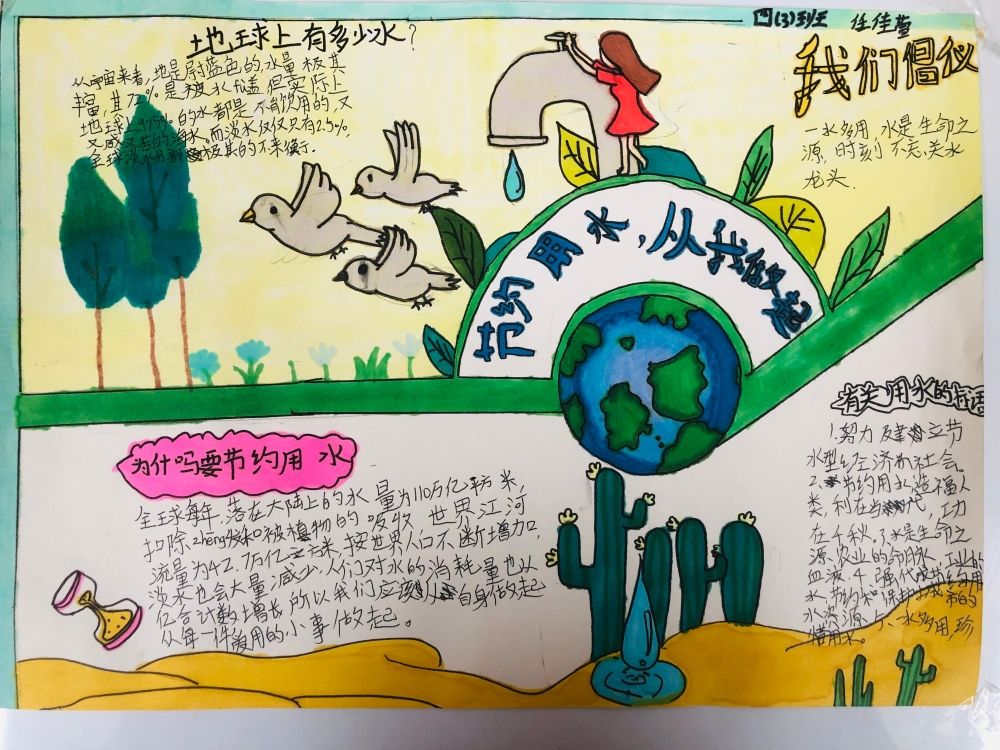 四(3)班 任佳萱
地球上有多少水?
从宇宙来看,地是蔚蓝色的,水量极其
丰富,其72%是被水覆盖,但实际上
地球上97.5%的水都是不能饮用的,又
又咸又苦的海水,而淡水仅仅只有2.5%,
全球淡水 极其的不来衡.
我们倡仪
一水多用,水是生命之
源,时刻不忘,关水
龙头.
节约用水,从我做起
为什吗要节约用水
全球每年,落在大陆上的水量为110万亿平方米,
扣除zheng发和被植物的吸收,世界江河
流量为42.7万亿立方米,按世界人口不断增加,
淡水也会大量减少,人们对水的消耗量也以
亿合计数增长,所以我们应该从自身做起
从每一件 用的小事做起.
有关用水的标语
1.努力建立节
水型经济和社会.
2.节约用水造福人
类,利在当代,功
在千秋.3.水是生命之
源,农业的命脉,工业的
血液.4.强化城节约用
水,节约和保护 市的
水资源.5.一水多用,珍
惜用水.